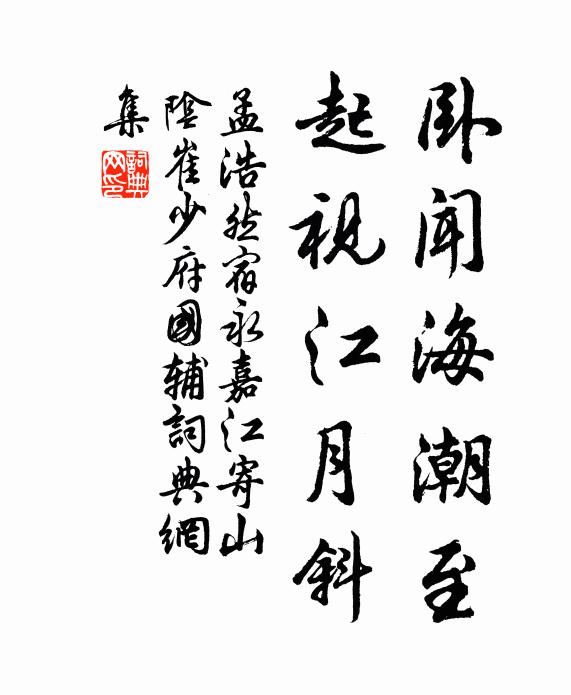 卧聞海潮至
起視江月斜
孟浩然宿永嘉江寄山
陰崔少府國輔詞典網
集
詞典
网印